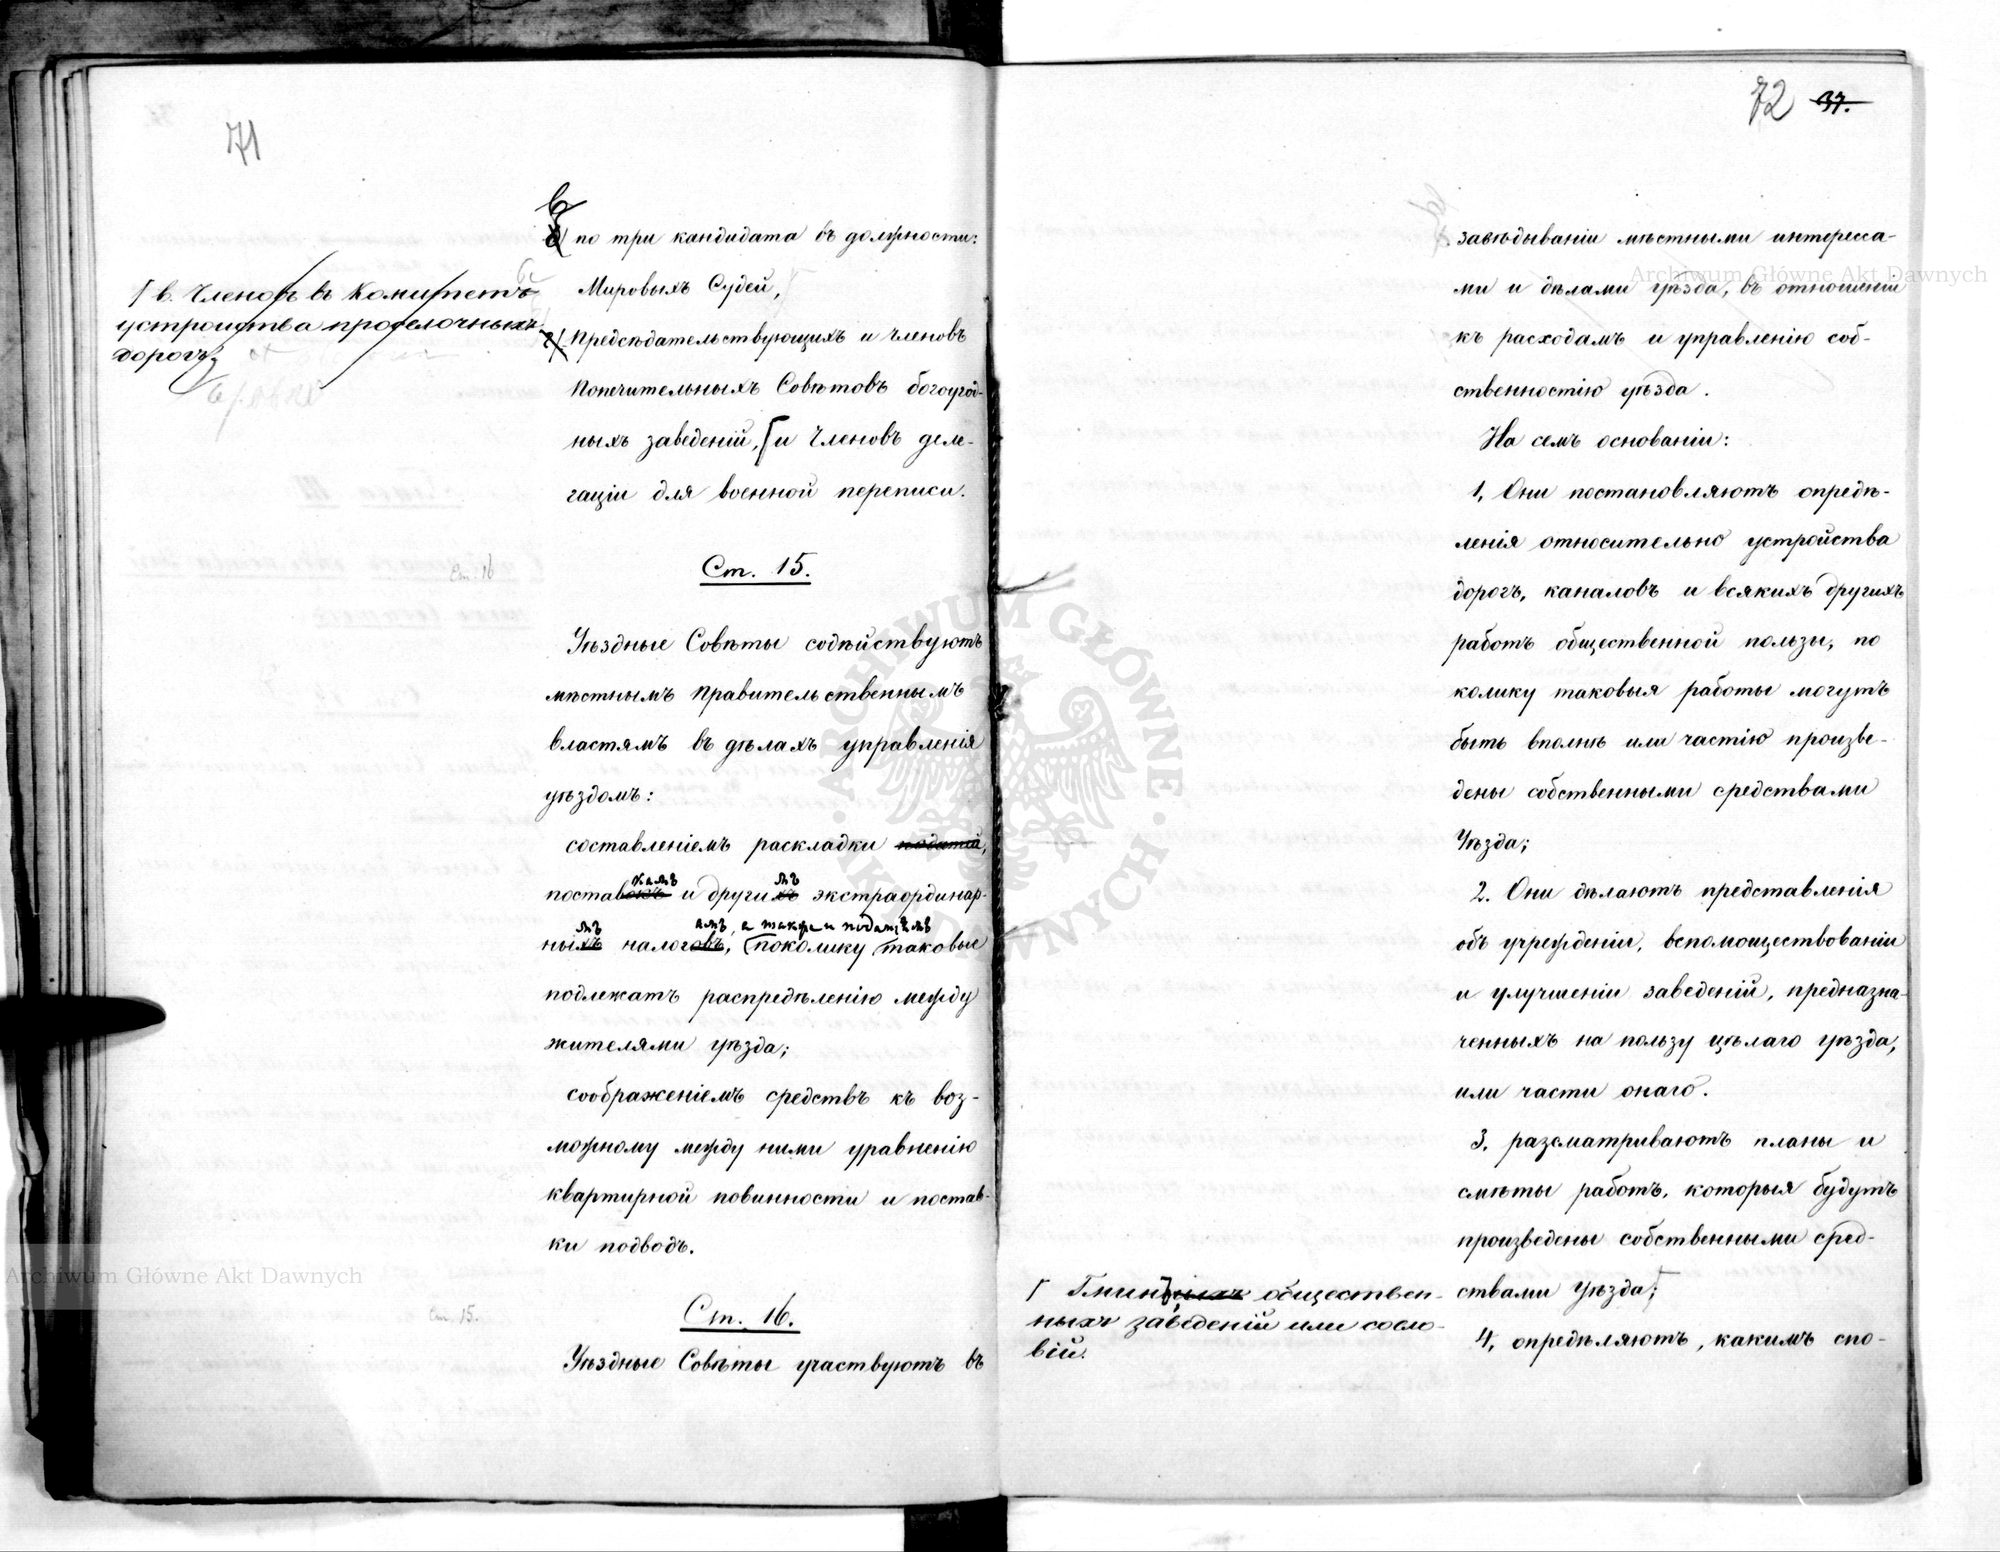 71
в
б) по три кандидата въ должности:
Мировыхъ Судей,
г) Предсѣдательствующихъ и Членовъ
Попечительныхъ Совѣтовъ богоугод-
ныхъ заведеній, и Членовъ деле-
гаціи для военной переписи.
в. Членовъ въ Комитетъ
устройства проселочныхъ
дорогъ
Ст. 16
Ст. 15.
Уѣздные Совѣты содѣйствуютъ
мѣстнымъ Правительственнымъ
властямъ въ дѣлахъ управленія
уѣздомъ:
составленіемъ раскладки податей,
камъ мъ
поставокъ и другихъ экстраординар-
мъ амъ, а также и податямъ
ныхъ налоговъ, поколику таковые
подлежатъ распредѣленію между
жителями уѣзда;
соображеніемъ средствъ къ воз-
можному между ними уравненію
квартирной повинности и постав-
ки подводъ.
Ст. 15.
Ст. 16.
Уѣздные Совѣты участвуютъ въ
72 37.
завѣдываніи мѣстными интересса-
ми и дѣлами уѣзда, въ отношеніи
къ расходамъ и управленію соб-
ственностію уѣзда.
На семъ основаніи:
1, Они постановляютъ опредѣ-
ленія относительно устройства
дорогъ, каналовъ и всякихъ другихъ
работъ общественной пользы, по
колику таковыя работы могутъ
быть вполнѣ или частію произве-
дены собственными средствами
Уѣзда;
2. Они дѣлаютъ представленія
объ учрежденіи, вспомоществованіи
и улучшеніи заведеній, предназна-
ченныхъ на пользу цѣлаго уѣзда,
или части онаго.
3. разсматриваютъ планы и
смѣты работъ, которыя будутъ
произведены собственными сред-
ствами Уѣзда;
Гмин общественныхъ заведеній или сосло-
вій.
4, опредѣляютъ, какимъ спо-
Archiwum Główne Akt Dawnych
Archiwum Główne Akt Dawnych
ARCHIWUM GŁÓWNE AKT DAWNYCH